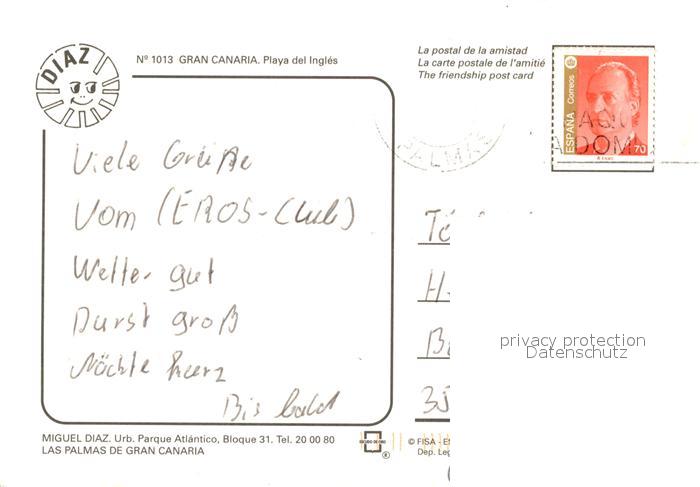 DIAZ
Nº 1013 GRAN CANARIA. Playa del Inglés
La postal de la amistad
La carte postale de l'amitié
The friendship post card
Correos
ESPAÑA
70
PALMAS
Viele Grüße
Vom (EROS-Club)
Wetter gut
Durst groß
Nächte kurz
Bis bald
privacy protection
Datenschutz
MIGUEL DIAZ. Urb. Parque Atlántico, Bloque 31. Tel. 20 00 80
LAS PALMAS DE GRAN CANARIA
© FISA - ES
Dep. Leg